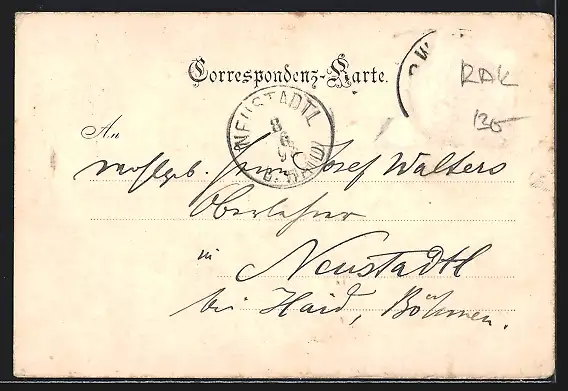 Correspondenz-Karte.
RAK
135
NEUSTADTL
8
6
9
B. HAID
An
Wohlgeb. Herrn Josef Walters
Oberlehrer
in
Neustadtl
bei Haid, Böhmen.